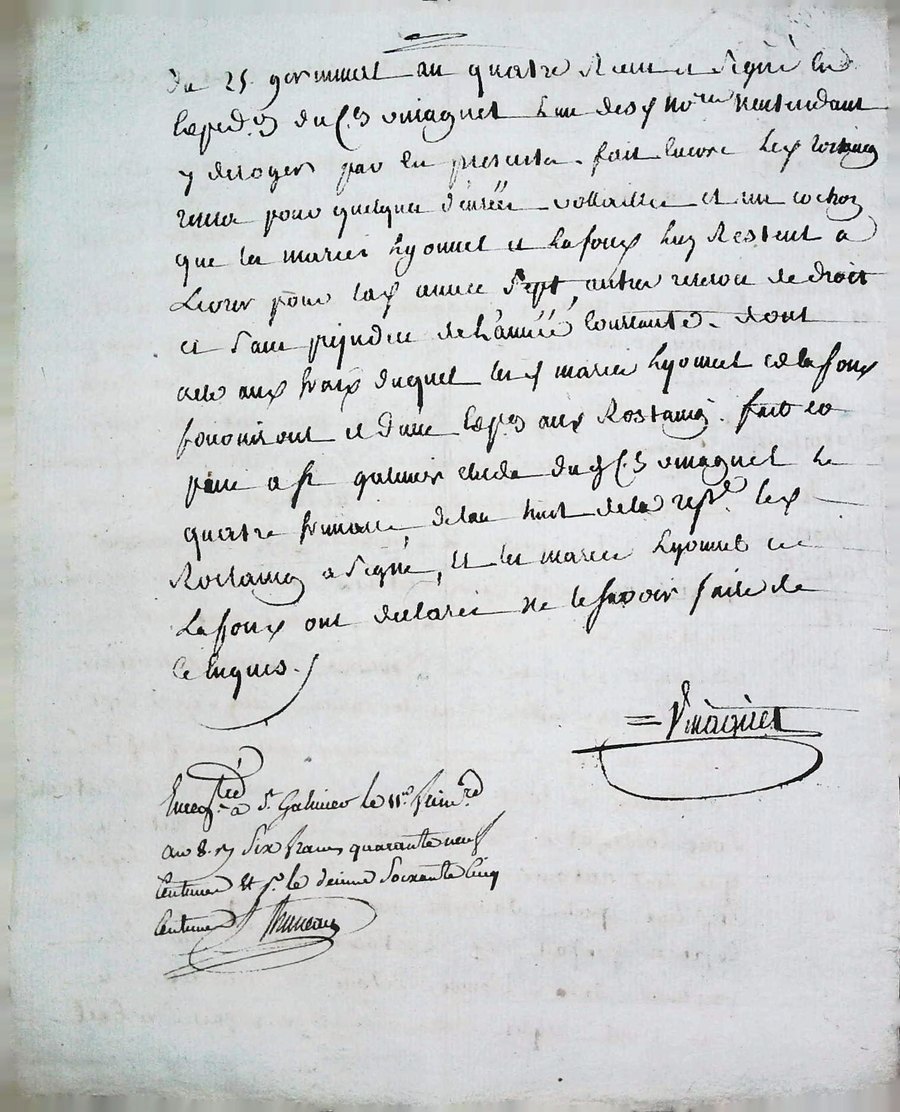 du 25 germinal an quatre Reçu et signé led
exped.on du C.en vinagnet l'un des d nores n'entendant
y deroger par les presentes. fait encore led Rostaing
reserve pour quelques denrées vollailles et un cochon
que les mariés Lyonnet et Lafoux luy Restent a
Livrer pour lad année sept, autre reserve de droit
et sans prejudice de l'année courante. dont
acte aux fraix duquel lesd mariés Lyonnet et Lafoux
fourniront et d'une exp.on aud Rostaing. fait et
passé a st galmier etude dud C.en vinagnet le
quatre frimaire de l'an huit de la rep.e led
Rostaing a signé, et les mariés Lyonnet et
Lafoux ont declarés ne le savoir faire de
ce enquis.
Vinagnet
Enreg.tré à S.t Galmier le 11.e frim.re
an 8. R. six francs quarante neuf
Centimes et p.r le dixme soixante cinq
Centimes